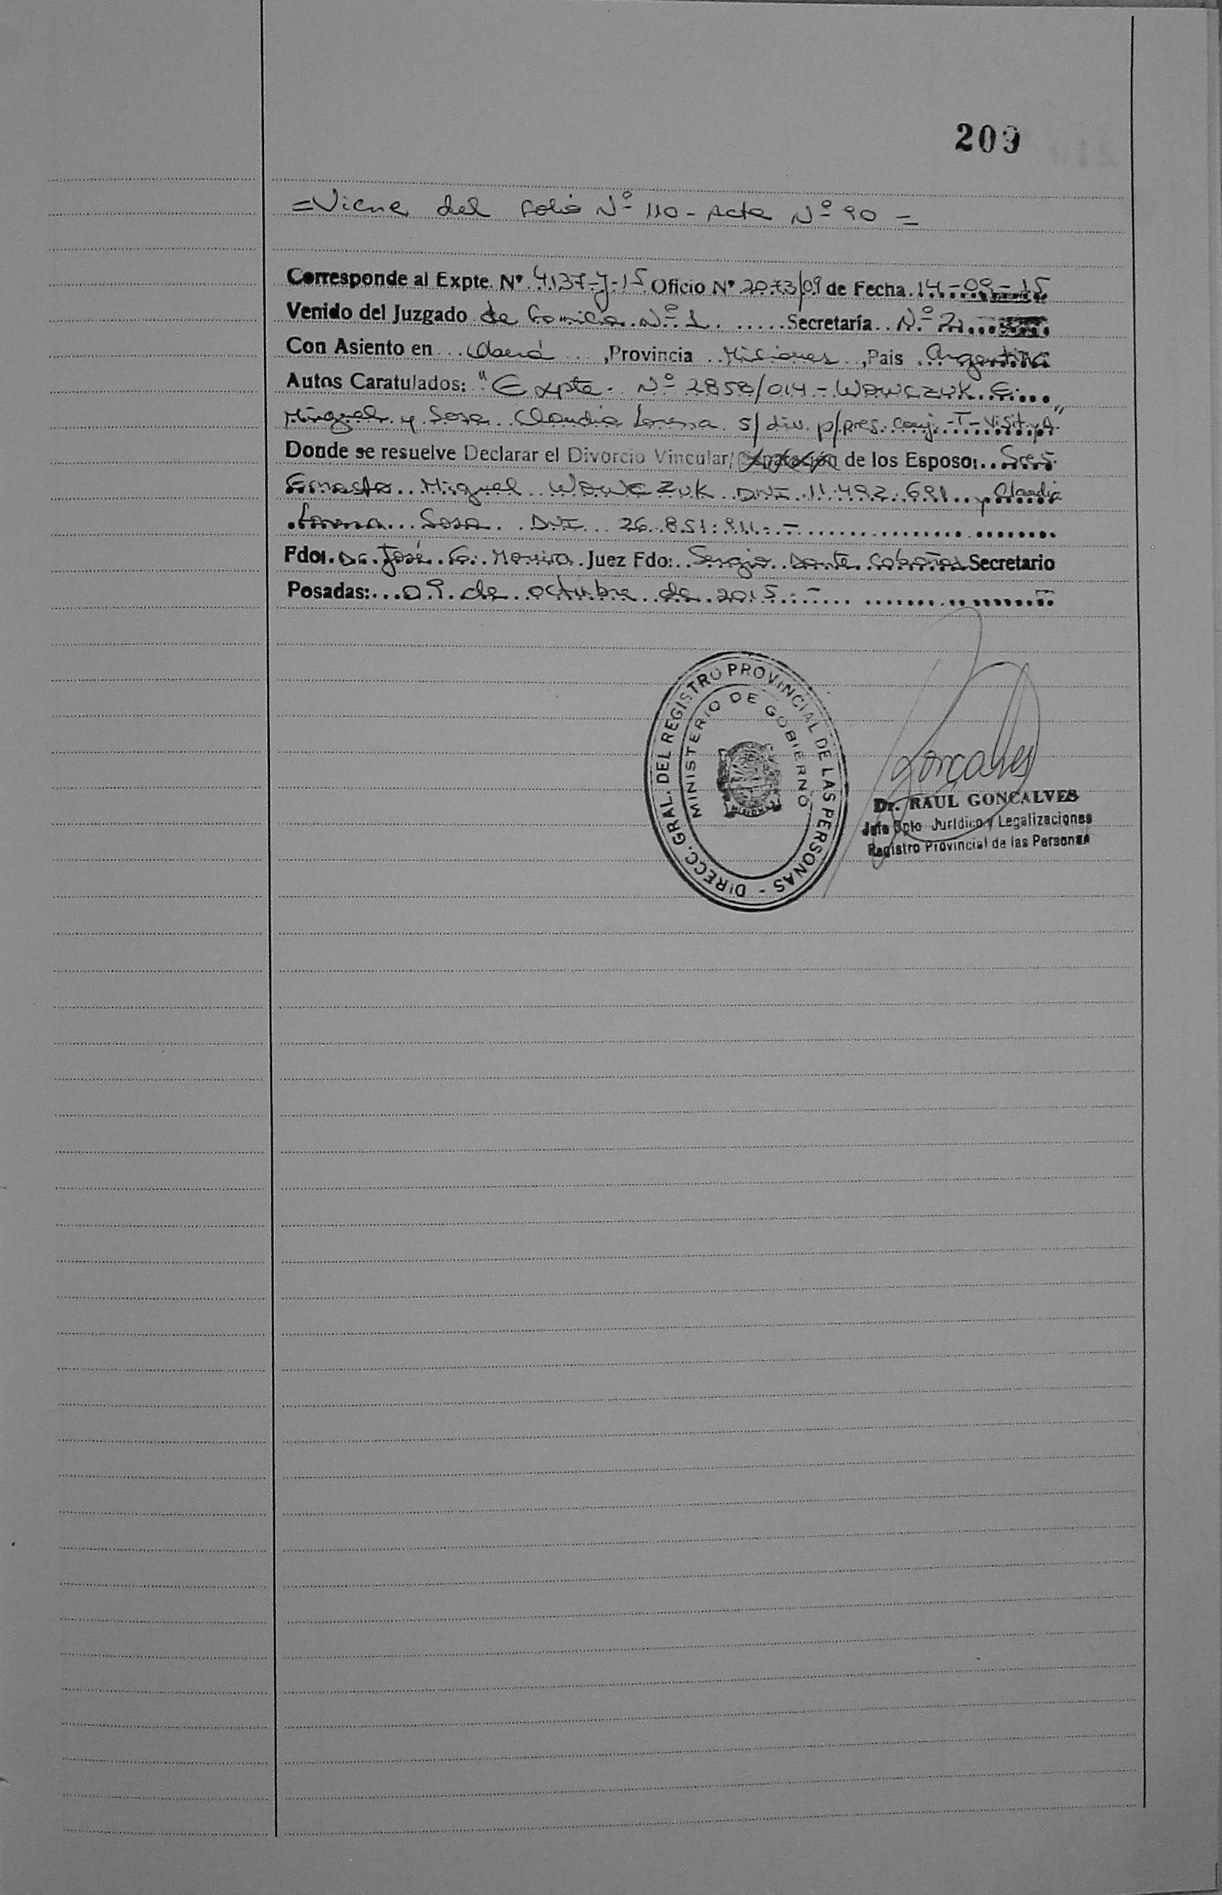 209
=Viene del folio Nº 110 - Acta Nº 90 =
Corresponde al Expte. Nº 4137-J-15 Oficio Nº 2073/09 de Fecha 14-09-15
Venido del Juzgado de Familia Nº 1 Secretaría Nº 2
Con Asiento en Oberá, Provincia Misiones, Pais Argentina
Autos Caratulados: "Expte. Nº 2858/014 - WOWCZUK E.
Miguel y Sosa Claudia Lorena s/ div. p/pres. conj. -T-Visit.yA"
Donde se resuelve Declarar el Divorcio Vincular/ de los Esposo: Sres
Ernesto Miguel WOWCZUK DNI 11.492.691 y Claudia
Lorena Sosa DNI 26.851.911.-
Fdo. Dr. José G. Moreira Juez Fdo: Sergio Dante Cabañas Secretario
Posadas: 09 de octubre de 2015.-
DIRECC. GRAL. DEL REGISTRO PROVINCIAL DE LAS PERSONAS -
MINISTERIO DE GOBIERNO
MISIONES
Goncalves
Dr. RAUL GONCALVES
Jefe Dpto Jurídico y Legalizaciones
Registro Provincial de las Personas